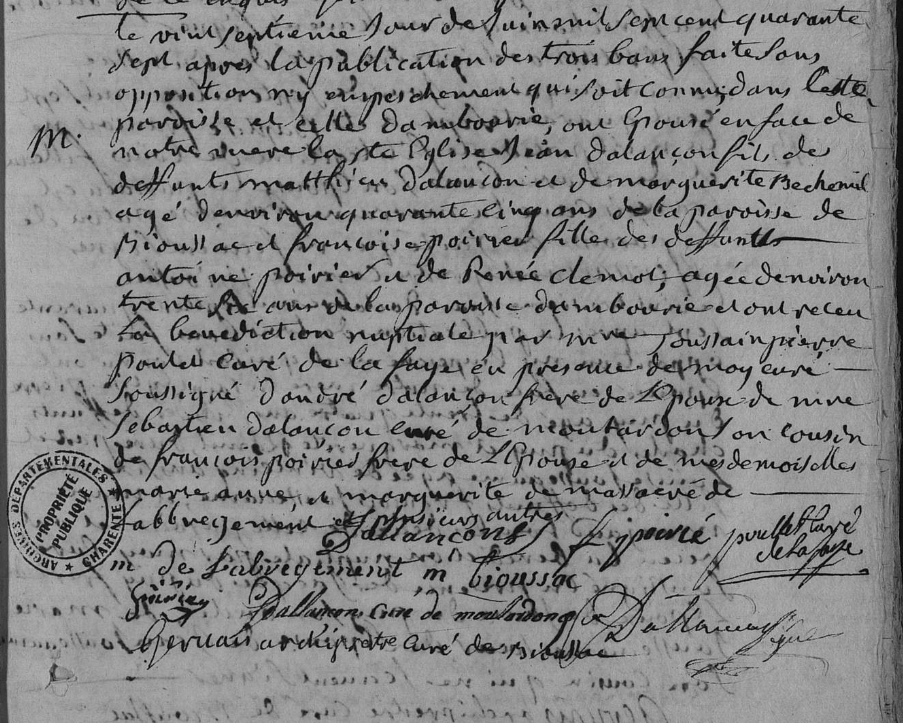 le vint septieme Jour de Juin mil sept cent quarante
sept apres la publication des trois bans faite sans
opposition ny empeschement qui soit connu, dans cette
M. paroisse et celle d'ambourie, ont Epousé en face de
notre mere la ste Eglise Jean dalançon fils de
deffunts matthieu dalancon et de marguerite Bechemil
agé denviron quarante cinq ans de la paroisse de
Bioussac et françoise poirier fille des deffunts
antoine poirier et de Renée clemot, agée denviron
trente ans de la paroisse dambourie et ont receu
la benediction nuptiale par mre toussain pierre
poulet curé de la faye en presence de moy curé
soussigné d'andré dalançon frere de L'Epoux de mre
sebastien dalancon curé de moutardon son cousin
de françois poirier frere de L'Epouse et de mesdemoiselles
marie anne et marguerite de massacré de
l'abbregement et plusieurs autres
Dallançons f poirié poullet curé
de la faye
m de l'abregement m bioussac
poirier Dallancon curé de moutardon
Gervais archiprêtre curé de Bioussac
ARCHIVES DEPARTEMENTALES
PROPRIÉTÉ
PUBLIQUE
★ CHARENTE ★